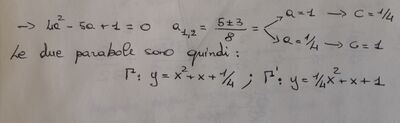 → 4a² - 5a + 1 = 0   a₁,₂ = (5 ± 3)/8 = a = 1 → c = 1/4
a = 1/4 → c = 1
Le due parabole sono quindi :
Γ: y = x² + x + 1/4 ; Γ': y = 1/4 x² + x + 1